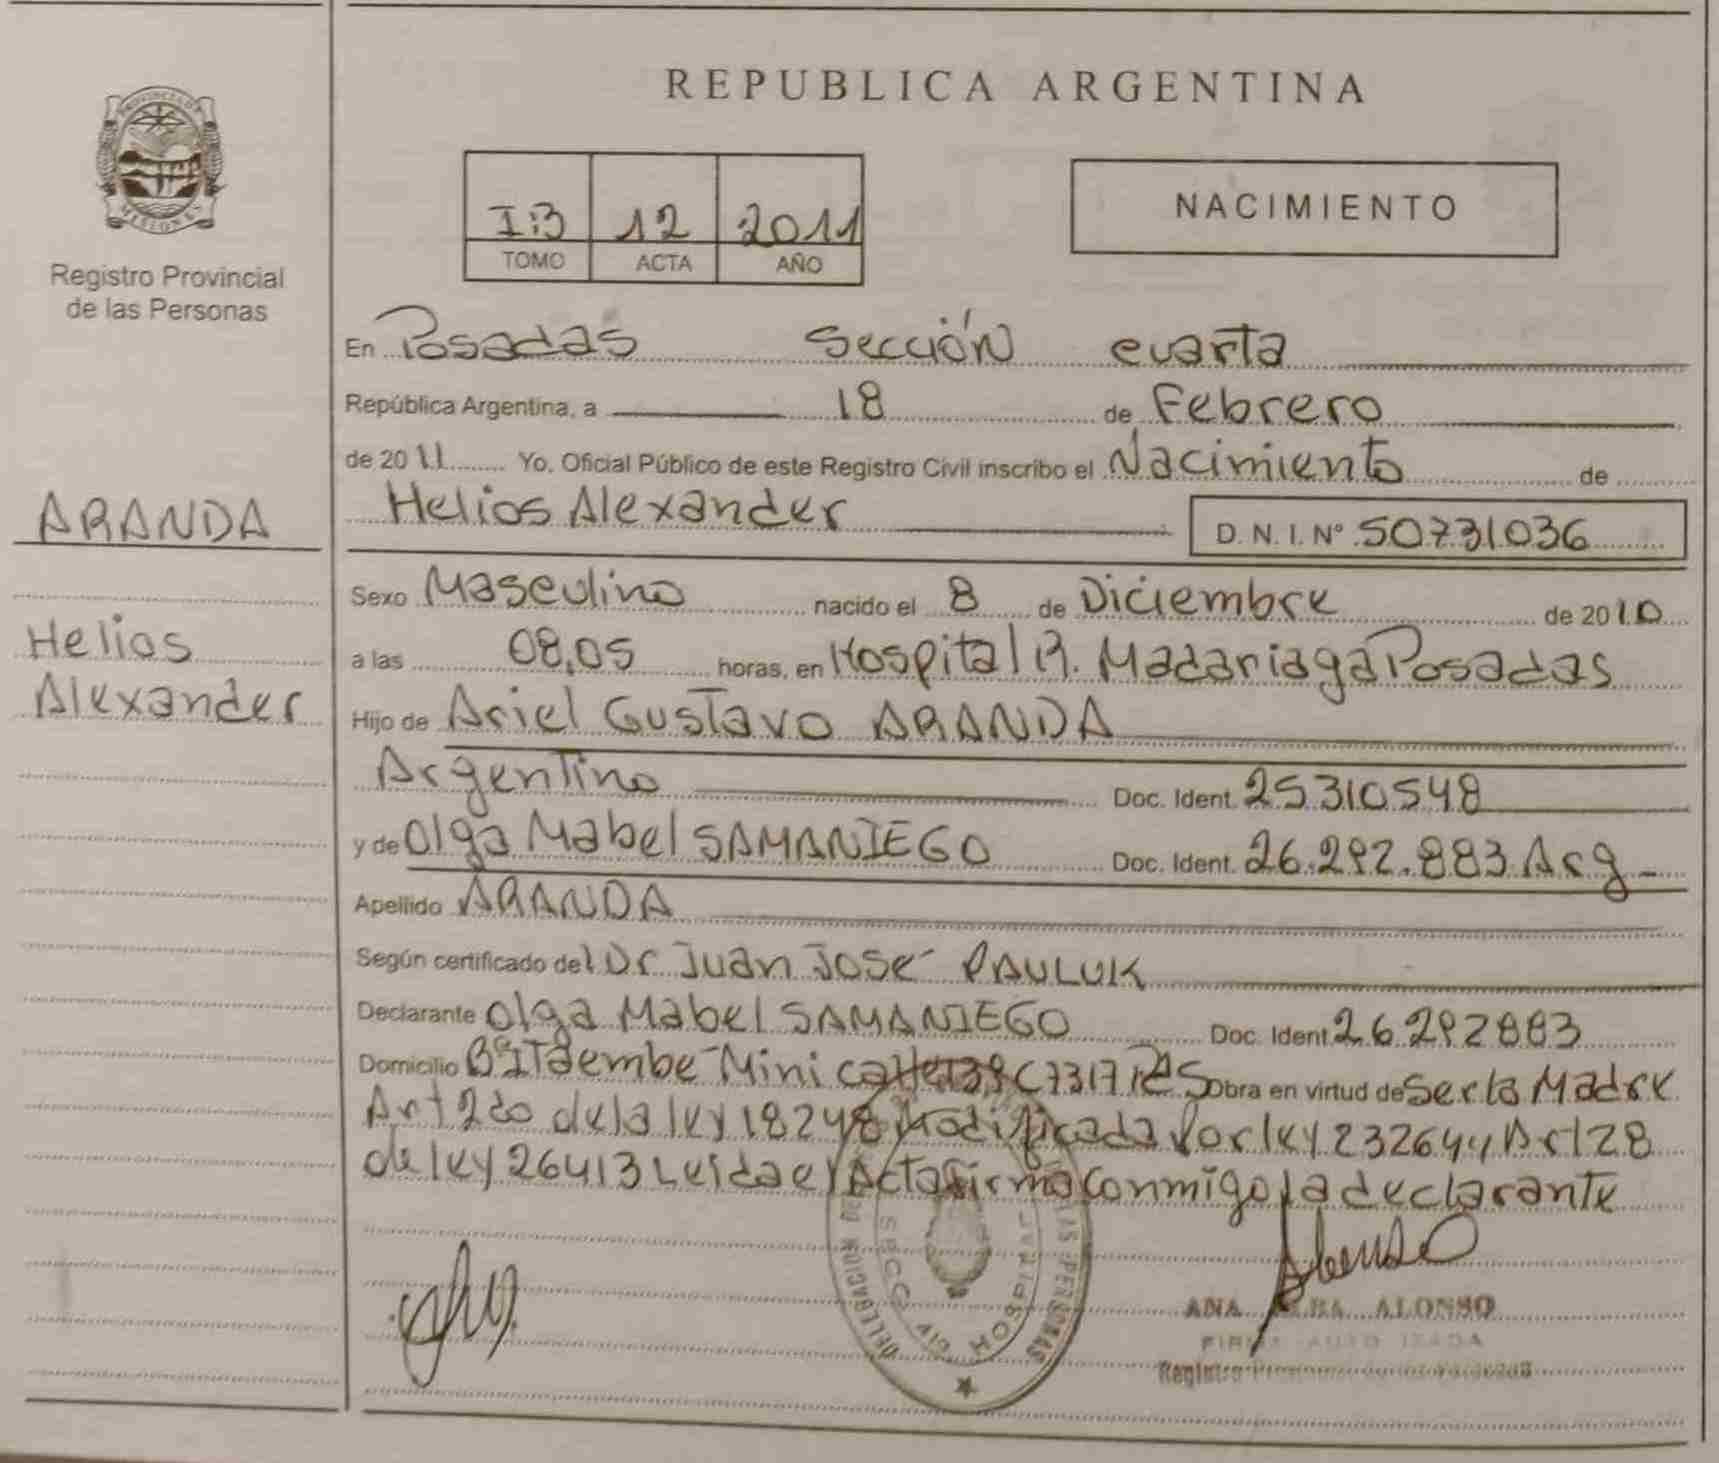 PROVINCIA DE
MISIONES
Registro Provincial
de las Personas
ARANDA
Helios
Alexander
REPUBLICA ARGENTINA
I:3 12 2011
TOMO ACTA AÑO
NACIMIENTO
En Posadas Sección cuarta
República Argentina, a 18 de Febrero
de 2011 Yo, Oficial Público de este Registro Civil inscribo el Nacimiento de
Helios Alexander D. N. I. Nº 50731036
Sexo Masculino nacido el 8 de Diciembre de 2010
a las 08,05 horas, en Hospital R. Madariaga Posadas
Hijo de Ariel Gustavo ARANDA
Argentino Doc. Ident. 25310548
y de Olga Mabel SAMANIEGO Doc. Ident. 26.292.883 Arg
Apellido ARANDA
Según certificado del Dr Juan José PAULUK
Declarante Olga Mabel SAMANIEGO Doc. Ident 26.292883
Domicilio Bº Itaembe Mini Obra en virtud de Ser la Madre
Art 2do de la ley 18248 Modificada Por ley 23264 y Art 28
de ley 26413 Leída el Acta firma Conmigo la declarante
DELEGACION DE LAS PERSONAS
SECC 4ta HOSPITAL
ANA ALBA ALONSO
FIRMA AUTORIZADA
Registro Provincial de las Personas